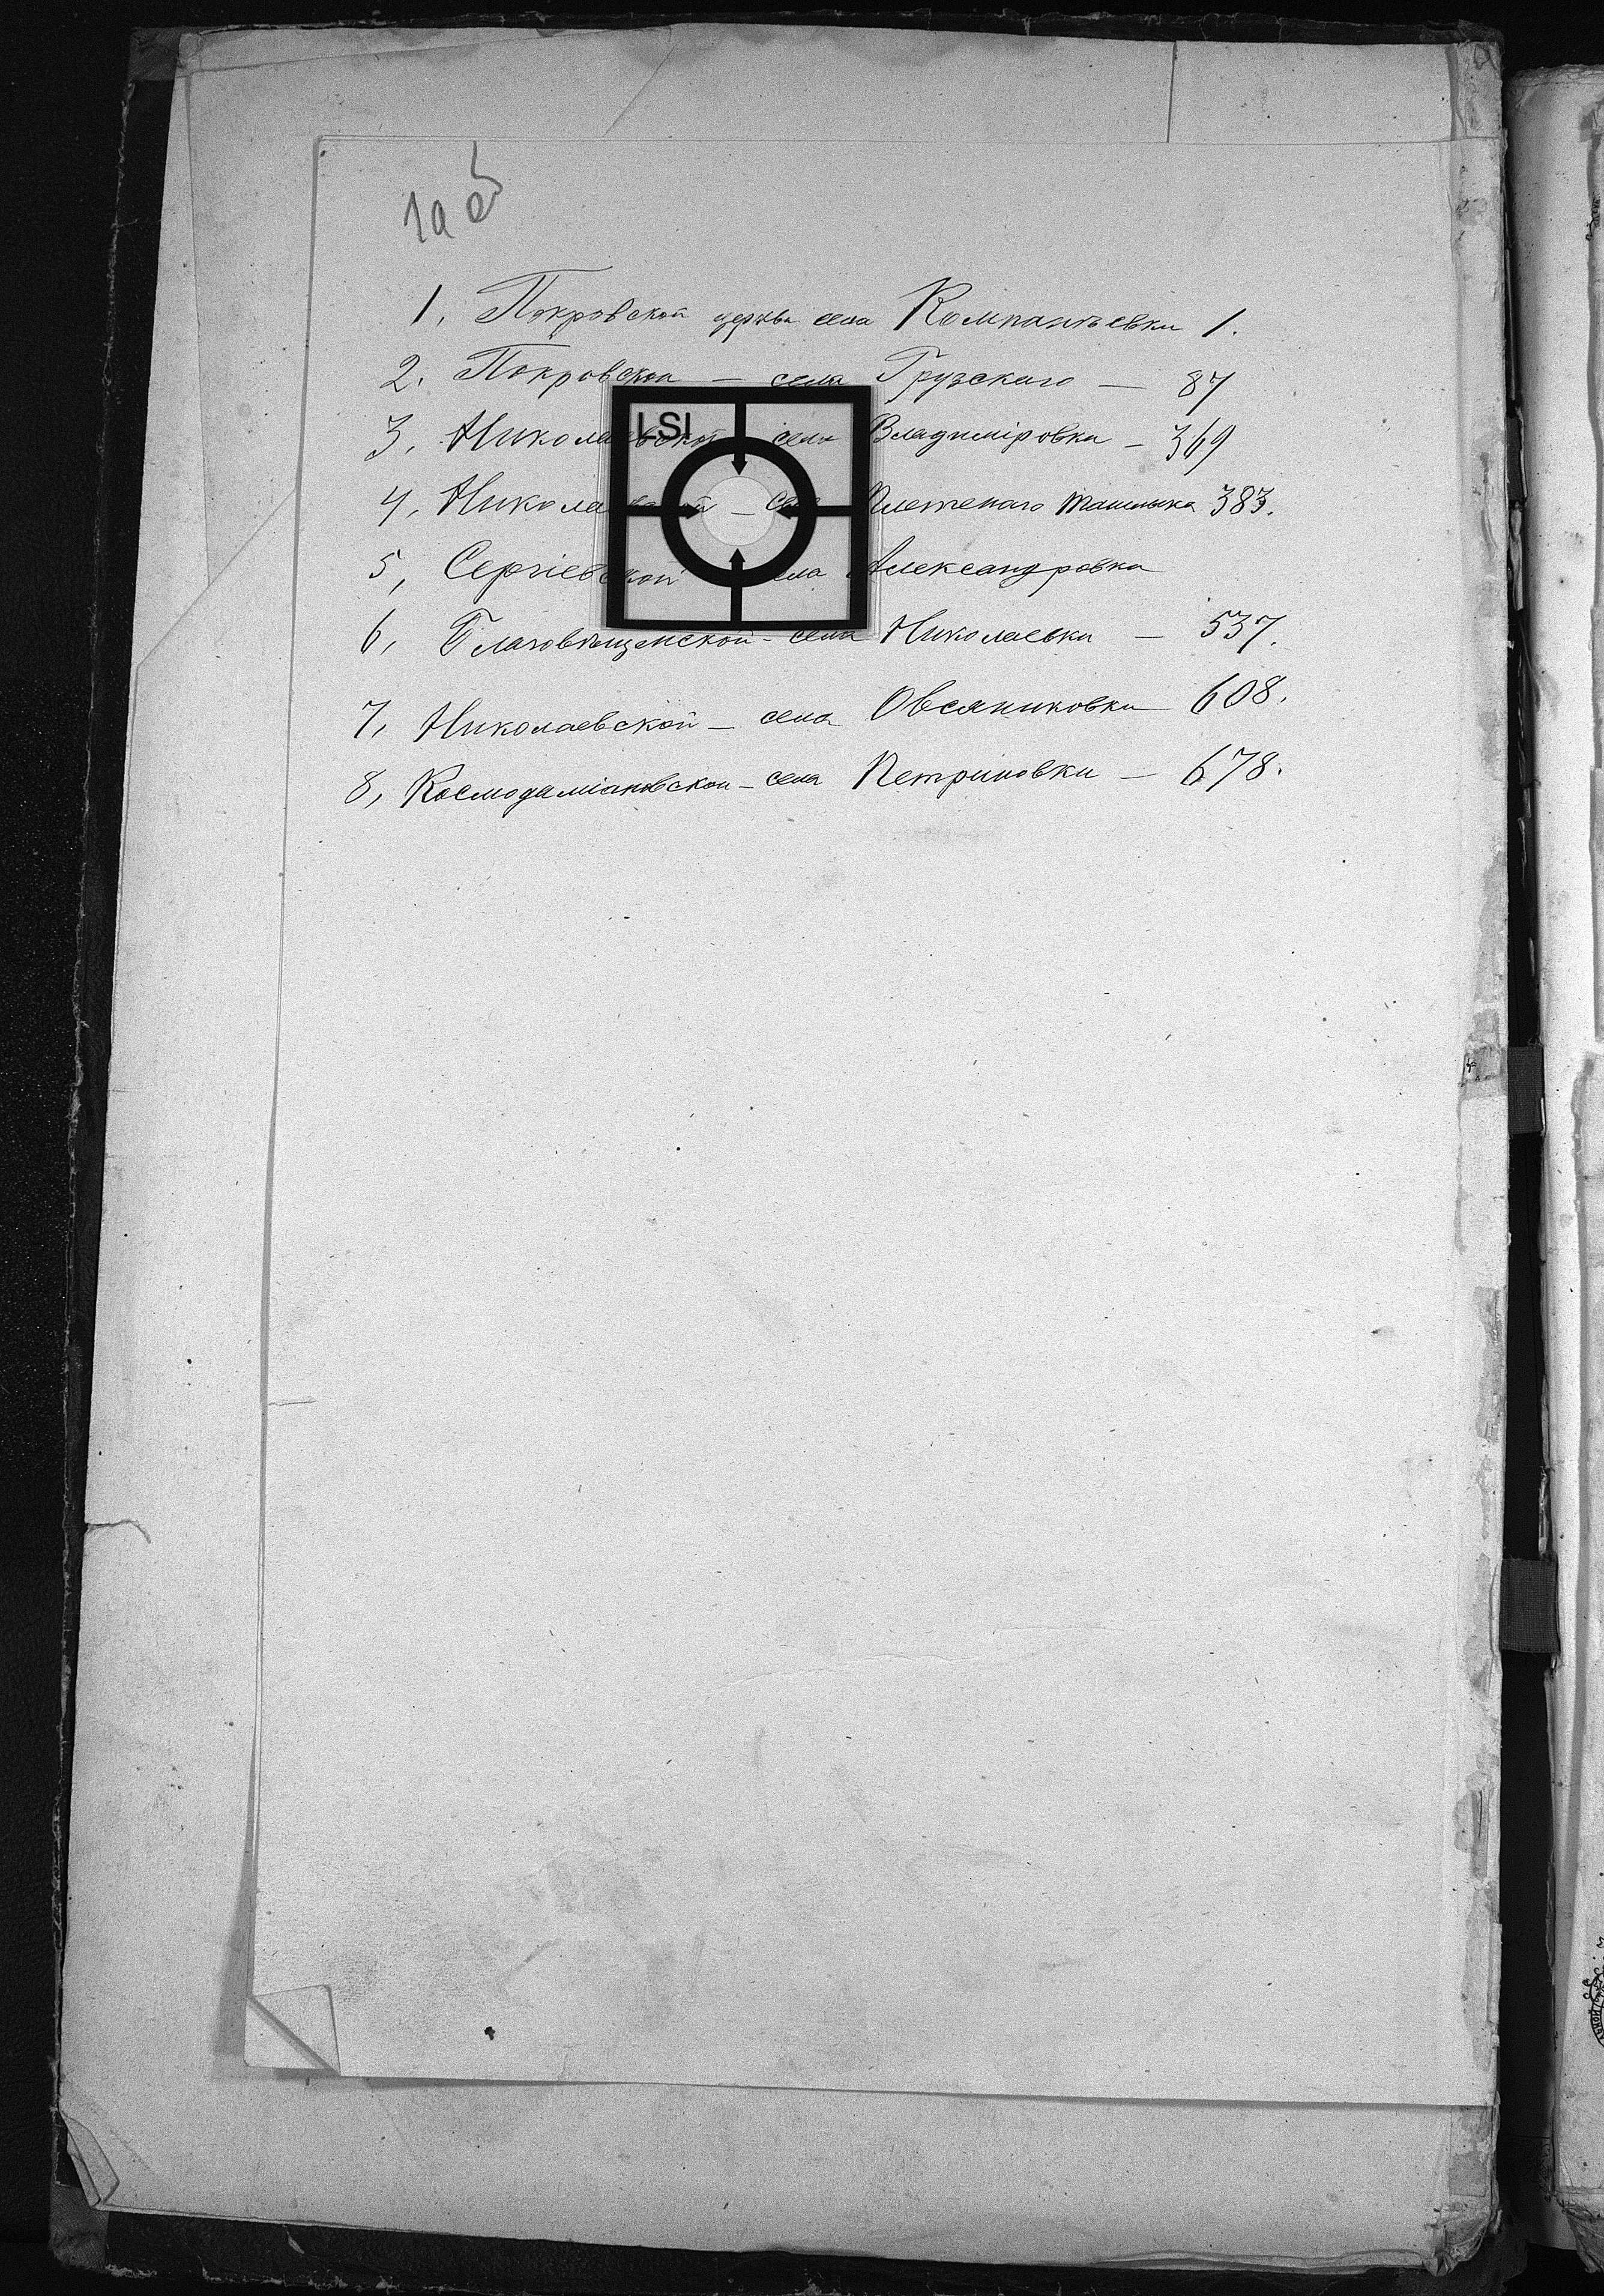 1а об
1, Покровской церкви села Компантьевки 1.
2. Покровской — села Грузскаго — 87
3, Николаевской села Владимiровки — 369
LSI
4, Николаевской — села Плетенаго Ташлыка 383.
5, Сергiевской села Александровка
6, Благовѣщенской — села Николаевки — 537.
7, Николаевской — села Овсяниковки — 608.
8, Космодамiановской — села Петриновки — 678.